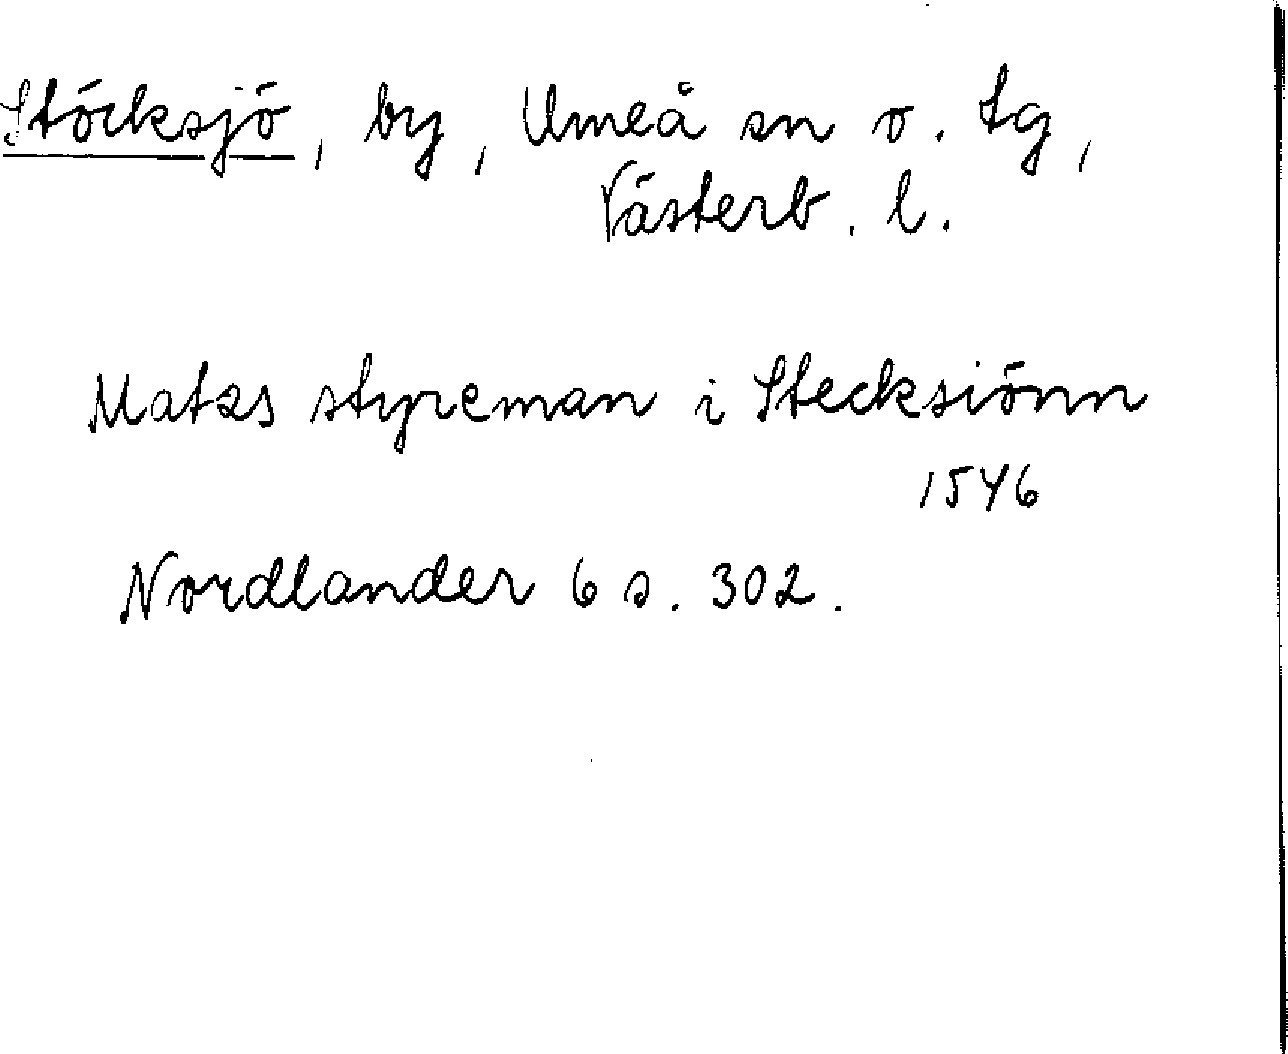 Stöcksjö, by, Umeå sn o. tg,
Västerb. l.
Matzs styreman i Stecksiönn
1546
Nordlander 6 s. 302.